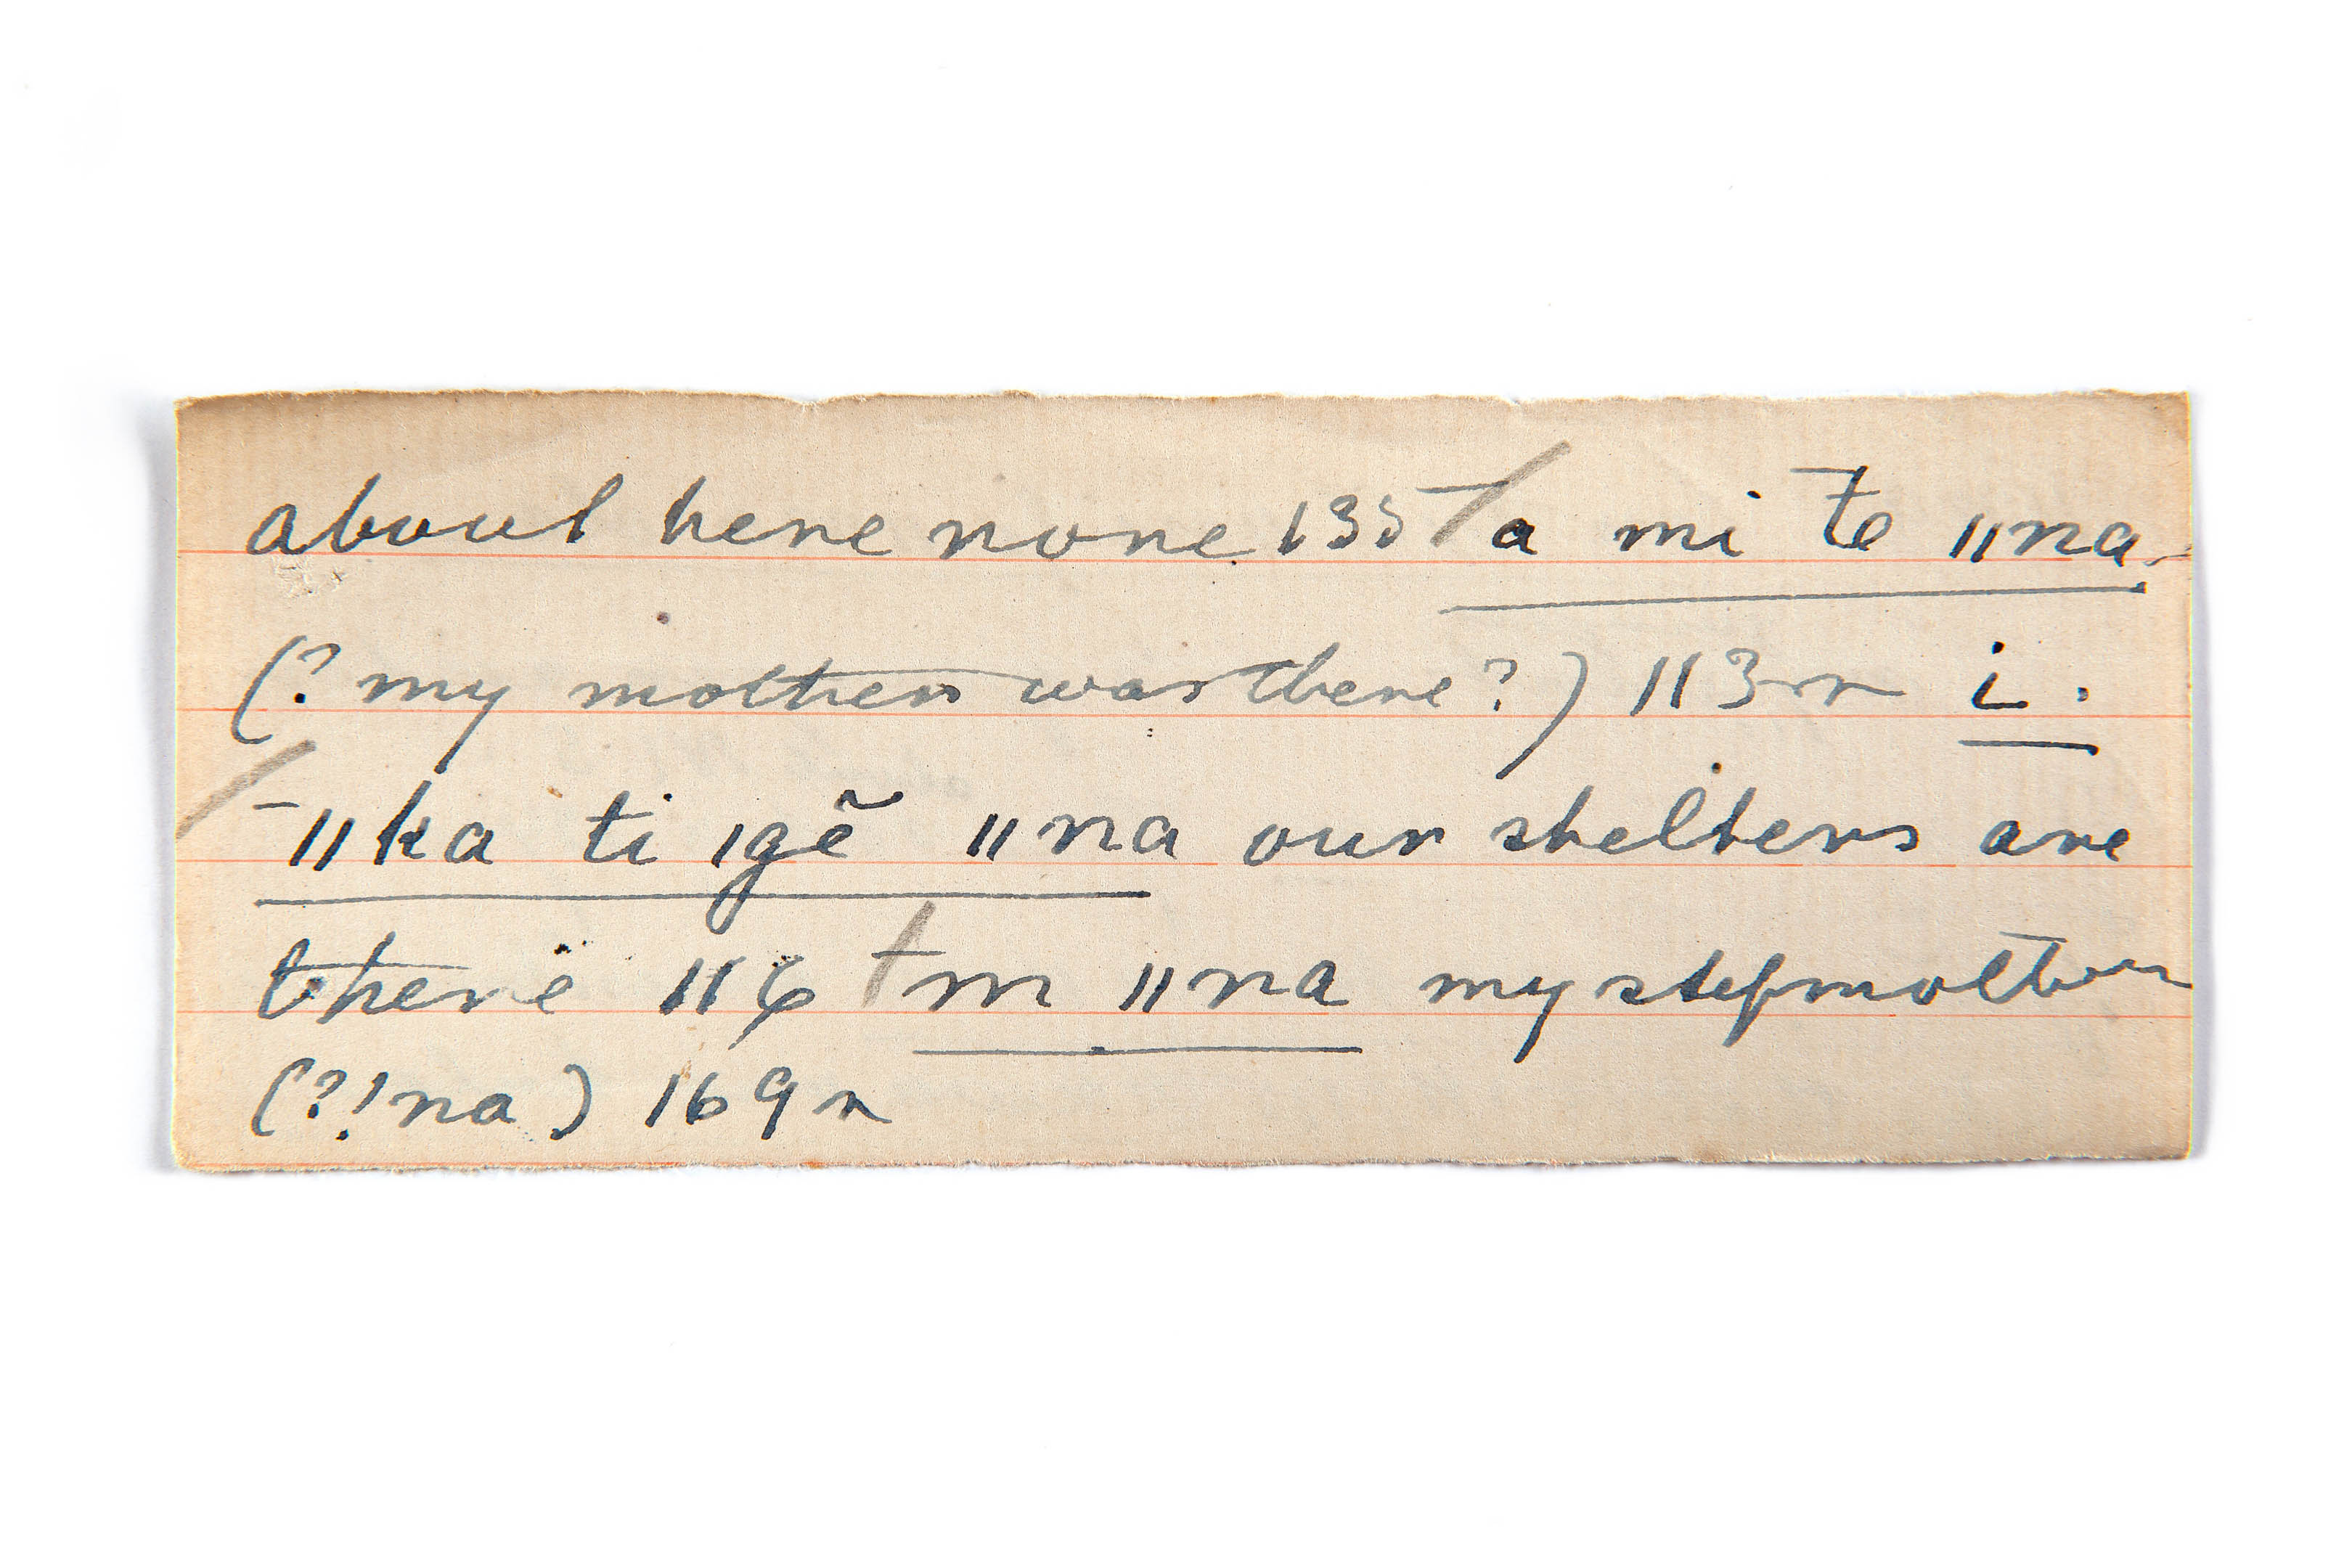 about here none 135 / a mi te ǁna
(? my mother was there?) 113 r i.
ǁka ti ǀgẽ ǁna our shelters are
there 116 / m ǁna my stepmother
(?!na) 169 r